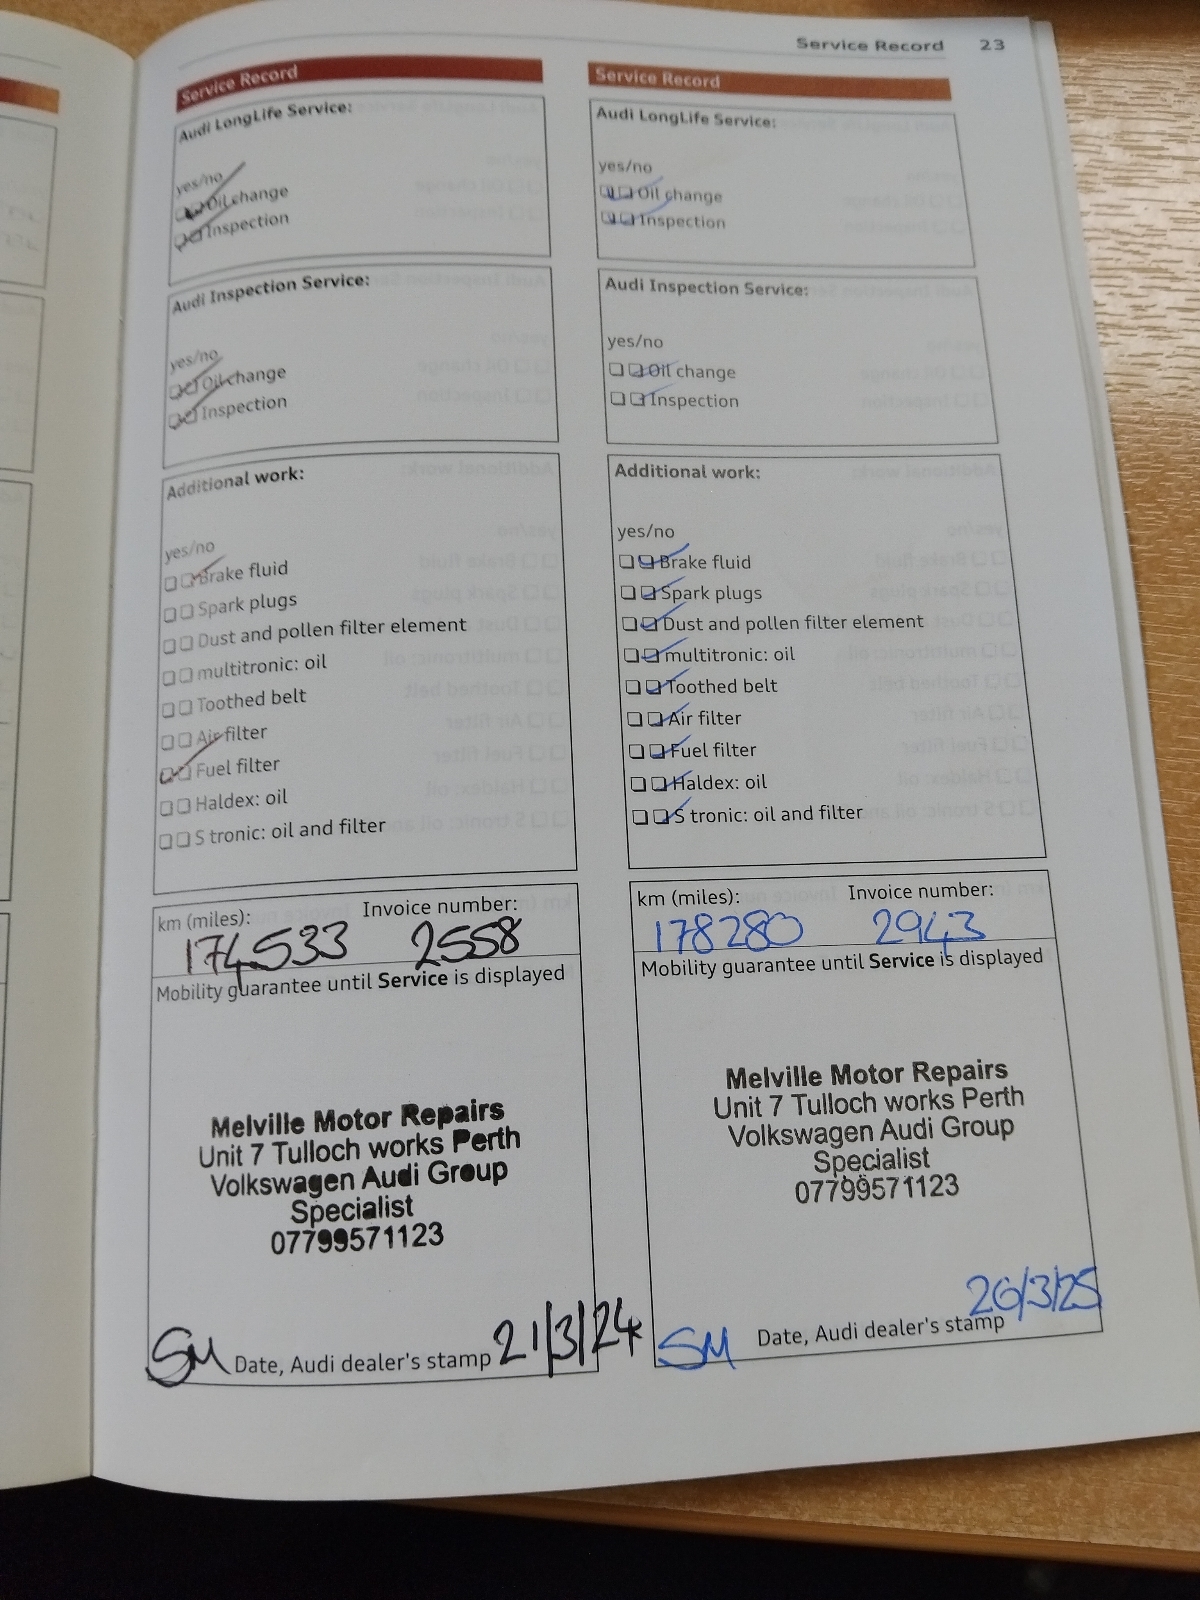 Service Record 23
Service Record
Audi LongLife Service:
yes/no
Oil change
Inspection
Audi Inspection Service:
yes/no
Oil change
Inspection
Additional work:
yes/no
Brake fluid
Spark plugs
Dust and pollen filter element
multitronic: oil
Toothed belt
Air filter
Fuel filter
Haldex: oil
S tronic: oil and filter
km (miles): Invoice number:
174533 2558
Mobility guarantee until Service is displayed
Melville Motor Repairs
Unit 7 Tulloch works Perth
Volkswagen Audi Group
Specialist
07799571123
SM Date, Audi dealer's stamp 21/3/24
Service Record
Audi LongLife Service:
yes/no
Oil change
Inspection
Audi Inspection Service:
yes/no
Oil change
Inspection
Additional work:
yes/no
Brake fluid
Spark plugs
Dust and pollen filter element
multitronic: oil
Toothed belt
Air filter
Fuel filter
Haldex: oil
S tronic: oil and filter
km (miles): Invoice number:
178280 2943
Mobility guarantee until Service is displayed
Melville Motor Repairs
Unit 7 Tulloch works Perth
Volkswagen Audi Group
Specialist
07799571123
26/3/25
SM Date, Audi dealer's stamp